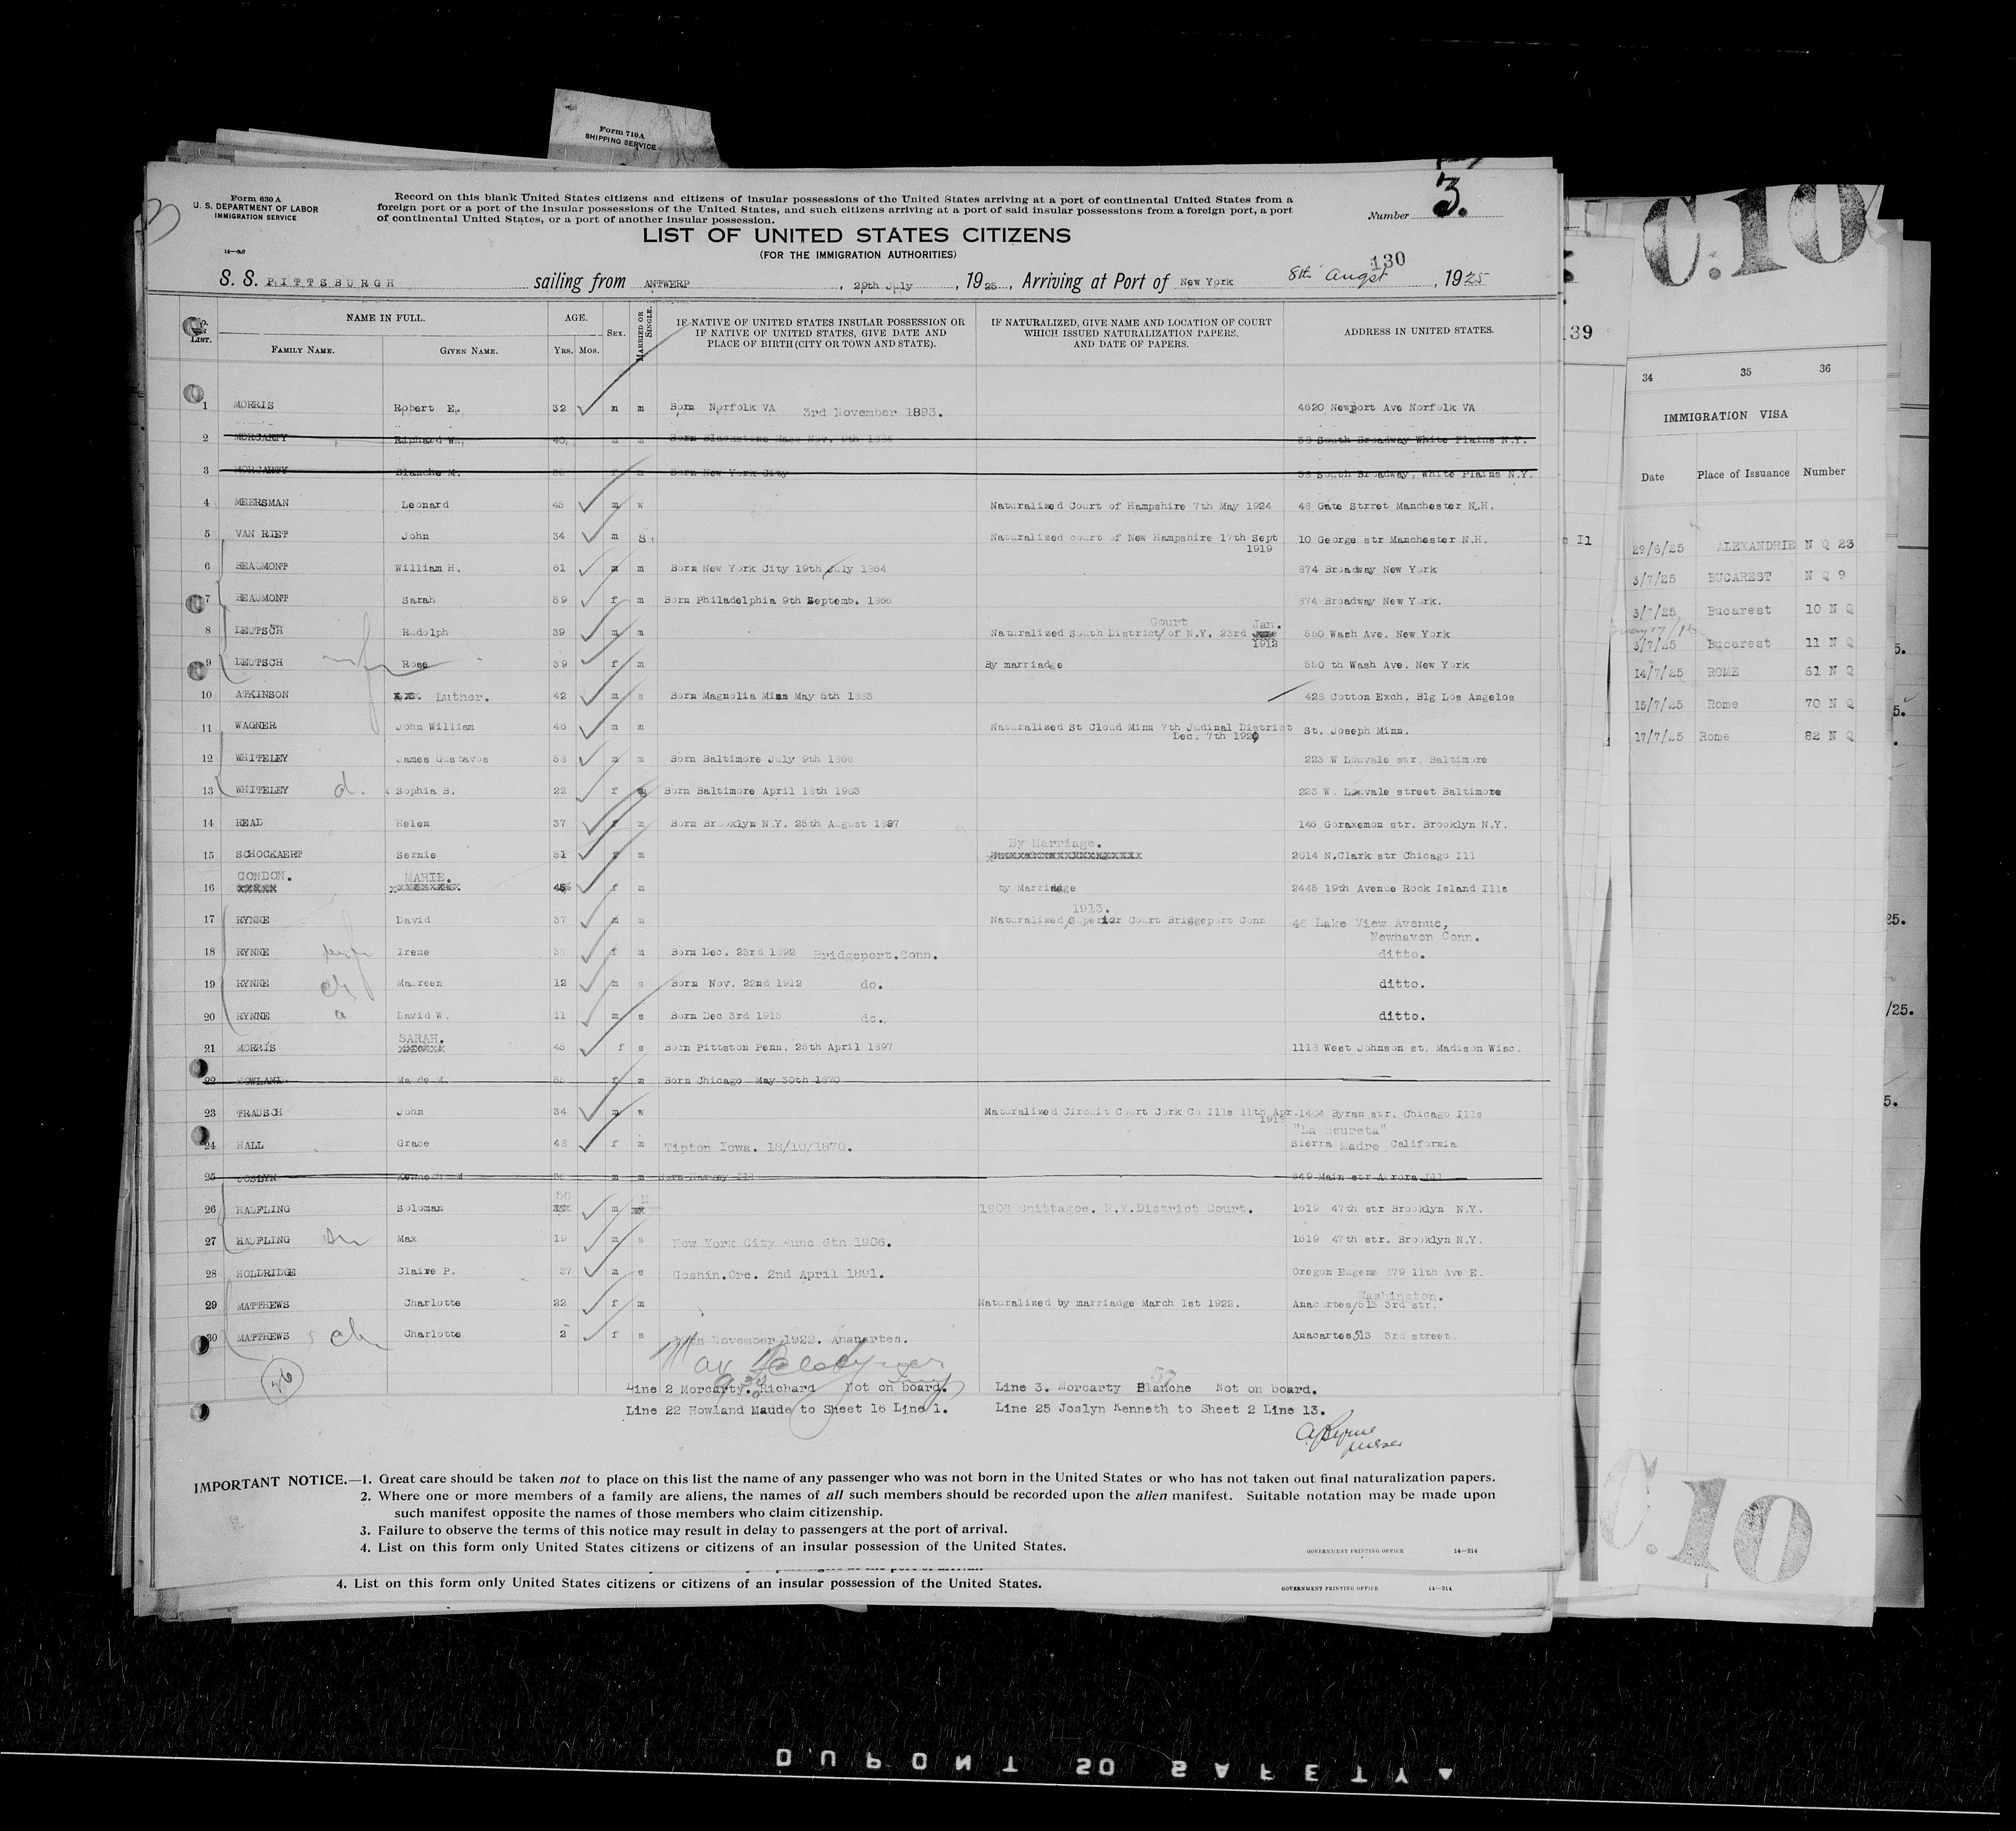 Form 710A
SHIPPING SERVICE
Form 630 A
U. S. DEPARTMENT OF LABOR
IMMIGRATION SERVICE
Record on this blank United States citizens and citizens of insular possessions of the United States arriving at a port of continental United States from a
foreign port or a port of the insular possessions of the United States, and such citizens arriving at a port of said insular possessions from a foreign port, a port
of continental United States, or a port of another insular possession.
Number 3.
LIST OF UNITED STATES CITIZENS
(FOR THE IMMIGRATION AUTHORITIES)
130
S. S. PITTSBURGH sailing from ANTWERP, 29th July, 1925, Arriving at Port of New York 8th Augst, 1925
No. ON LIST. NAME IN FULL. AGE. SEX. MARRIED OR SINGLE. IF NATIVE OF UNITED STATES INSULAR POSSESSION OR IF NATIVE OF UNITED STATES, GIVE DATE AND PLACE OF BIRTH (CITY OR TOWN AND STATE). IF NATURALIZED, GIVE NAME AND LOCATION OF COURT WHICH ISSUED NATURALIZATION PAPERS, AND DATE OF PAPERS. ADDRESS IN UNITED STATES.
FAMILY NAME. GIVEN NAME. YRS. MOS.
1 MORRIS Robert E. 32 m m Born Norfolk VA 3rd November 1893. 4620 Newport Ave Norfolk VA
2 MORCARTY Richard W. 40 m m Born Blackstone Mass Nov. 9th 1884 38 South Broadway White Plains N.Y.
3 MORCARTY Blanche M. f m Born New York City 38 South Broadway, White Plains N.Y.
4 MEERSMAN Leonard 45 m w Naturalized Court of Hampshire 7th May 1924 48 Gate Strret Manchester N.H.
5 VAN RIET John 34 m S Naturalized court of New Hampshire 17th Sept 1919 10 George str Manchester N.H.
6 BEAUMONT William H. 61 m m Born New York City 19th July 1864 874 Broadway New York
7 BEAUMONT Sarah 59 f m Born Philadelphia 9th Septemb. 1866 874 Broadway New York.
8 DEUTSCH Rudolph 39 m m Naturalized South District/Court of N.Y. 23rd Jan. 1912 550 Wash Ave. New York
9 DEUTSCH Rose 39 f m By marriadge 550 th Wash Ave. New York
10 ATKINSON Luther. 42 m s Born Magnolia Miss May 5th 1883 428 Cotton Exch. Blg Los Angelos
11 WAGNER John William 46 m m Naturalized St Cloud Minn 7th Judinal District Dec. 7th 1920 St. Joseph Minn.
12 WHITELEY James Gustavos 58 m m Born Baltimore July 9th 1866 223 W Louvale str. Baltimore
13 WHITELEY d. Sophia B. 22 f Born Baltimore April 18th 1903 223 W. Louvale street Baltimore
14 READ Helen 37 f m Born Brooklyn N.Y. 25th August 1887 146 Goraxemon str. Brooklyn N.Y.
15 SCHOCKAERT Sernie 51 f m By Marriage. 2014 N.Clark str Chicago Ill
16 CONDON. MARIE. f m by Marriadge 2445 19th Avenue Rock Island Ills
17 RYNNE David 37 m m Naturalized/1913. Superior Court Bridgeport Conn 48 Lake View Avenue, Newhaven Conn.
18 RYNNE wife Irene f m Born Dec. 23rd 1892 Bridgeport.Conn. ditto.
19 RYNNE ch Maureen 12 m s Born Nov. 22nd 1912 do. ditto.
20 RYNNE David W. 11 m s Born Dec 3rd 1913 do. ditto.
21 MORRIS SARAH. f s Born Pittston Penn. 25th April 1897 1118 West Johnson st. Madison Wisc.
22 HOWLAND Maude M. 55 f m Born Chicago May 30th 1870
23 TRAUSCH John 34 m w Naturalized Circuit Court Cork Co Ills 11th Apr. 1404 Byran str. Chicago Ills
24 HALL Grace 48 f m Tipton Iowa. 18/10/1870. "La Heureta" Sierra Madre California
25 JOSLYN Kenneth m m Born Harvey Ill 649 Main str Aurora Ill
26 HAUFLING Soloman 56 m M 1908 Chittagoe. N.Y.District Court. 1619 47th str Brooklyn N.Y.
27 HAUFLING Max 19 m s New York City June 6th 1906. 1619 47th str. Brooklyn N.Y.
28 HOLDRIDGE Claire P. 37 m s Goshin.Ore. 2nd April 1891. Oregon Eugene 879 11th Ave E.
29 MATTHEWS Charlotte 22 f m Naturalized by marriadge March 1st 1922. Anacartes/Washington. 513 3rd str.
30 MATTHEWS ch Charlotte 2 f s November 1922. Ananartes. Anacartes 513 3rd street.
Line 2 Morcarty. Richard Not on board. Line 3. Morcarty Blanche Not on board.
Line 22 Howland Maude to Sheet 16 Line 1. Line 25 Joslyn Kenneth to Sheet 2 Line 13.
IMPORTANT NOTICE.—1. Great care should be taken not to place on this list the name of any passenger who was not born in the United States or who has not taken out final naturalization papers.
2. Where one or more members of a family are aliens, the names of all such members should be recorded upon the alien manifest. Suitable notation may be made upon
such manifest opposite the names of those members who claim citizenship.
3. Failure to observe the terms of this notice may result in delay to passengers at the port of arrival.
4. List on this form only United States citizens or citizens of an insular possession of the United States.
GOVERNMENT PRINTING OFFICE 14—214
4. List on this form only United States citizens or citizens of an insular possession of the United States.
GOVERNMENT PRINTING OFFICE 14—214
C.10
139
34 35 36
IMMIGRATION VISA
Date Place of Issuance Number
29/6/25 ALEXANDRIE N Q 23
3/7/25 BUCAREST N Q 9
3/7/25 Bucarest 10 N Q
3/7/25 Bucarest 11 N Q
14/7/25 ROME 61 N Q
15/7/25 Rome 70 N Q
17/7/25 Rome 82 N Q
C.10
DUPONT SO SAFETY